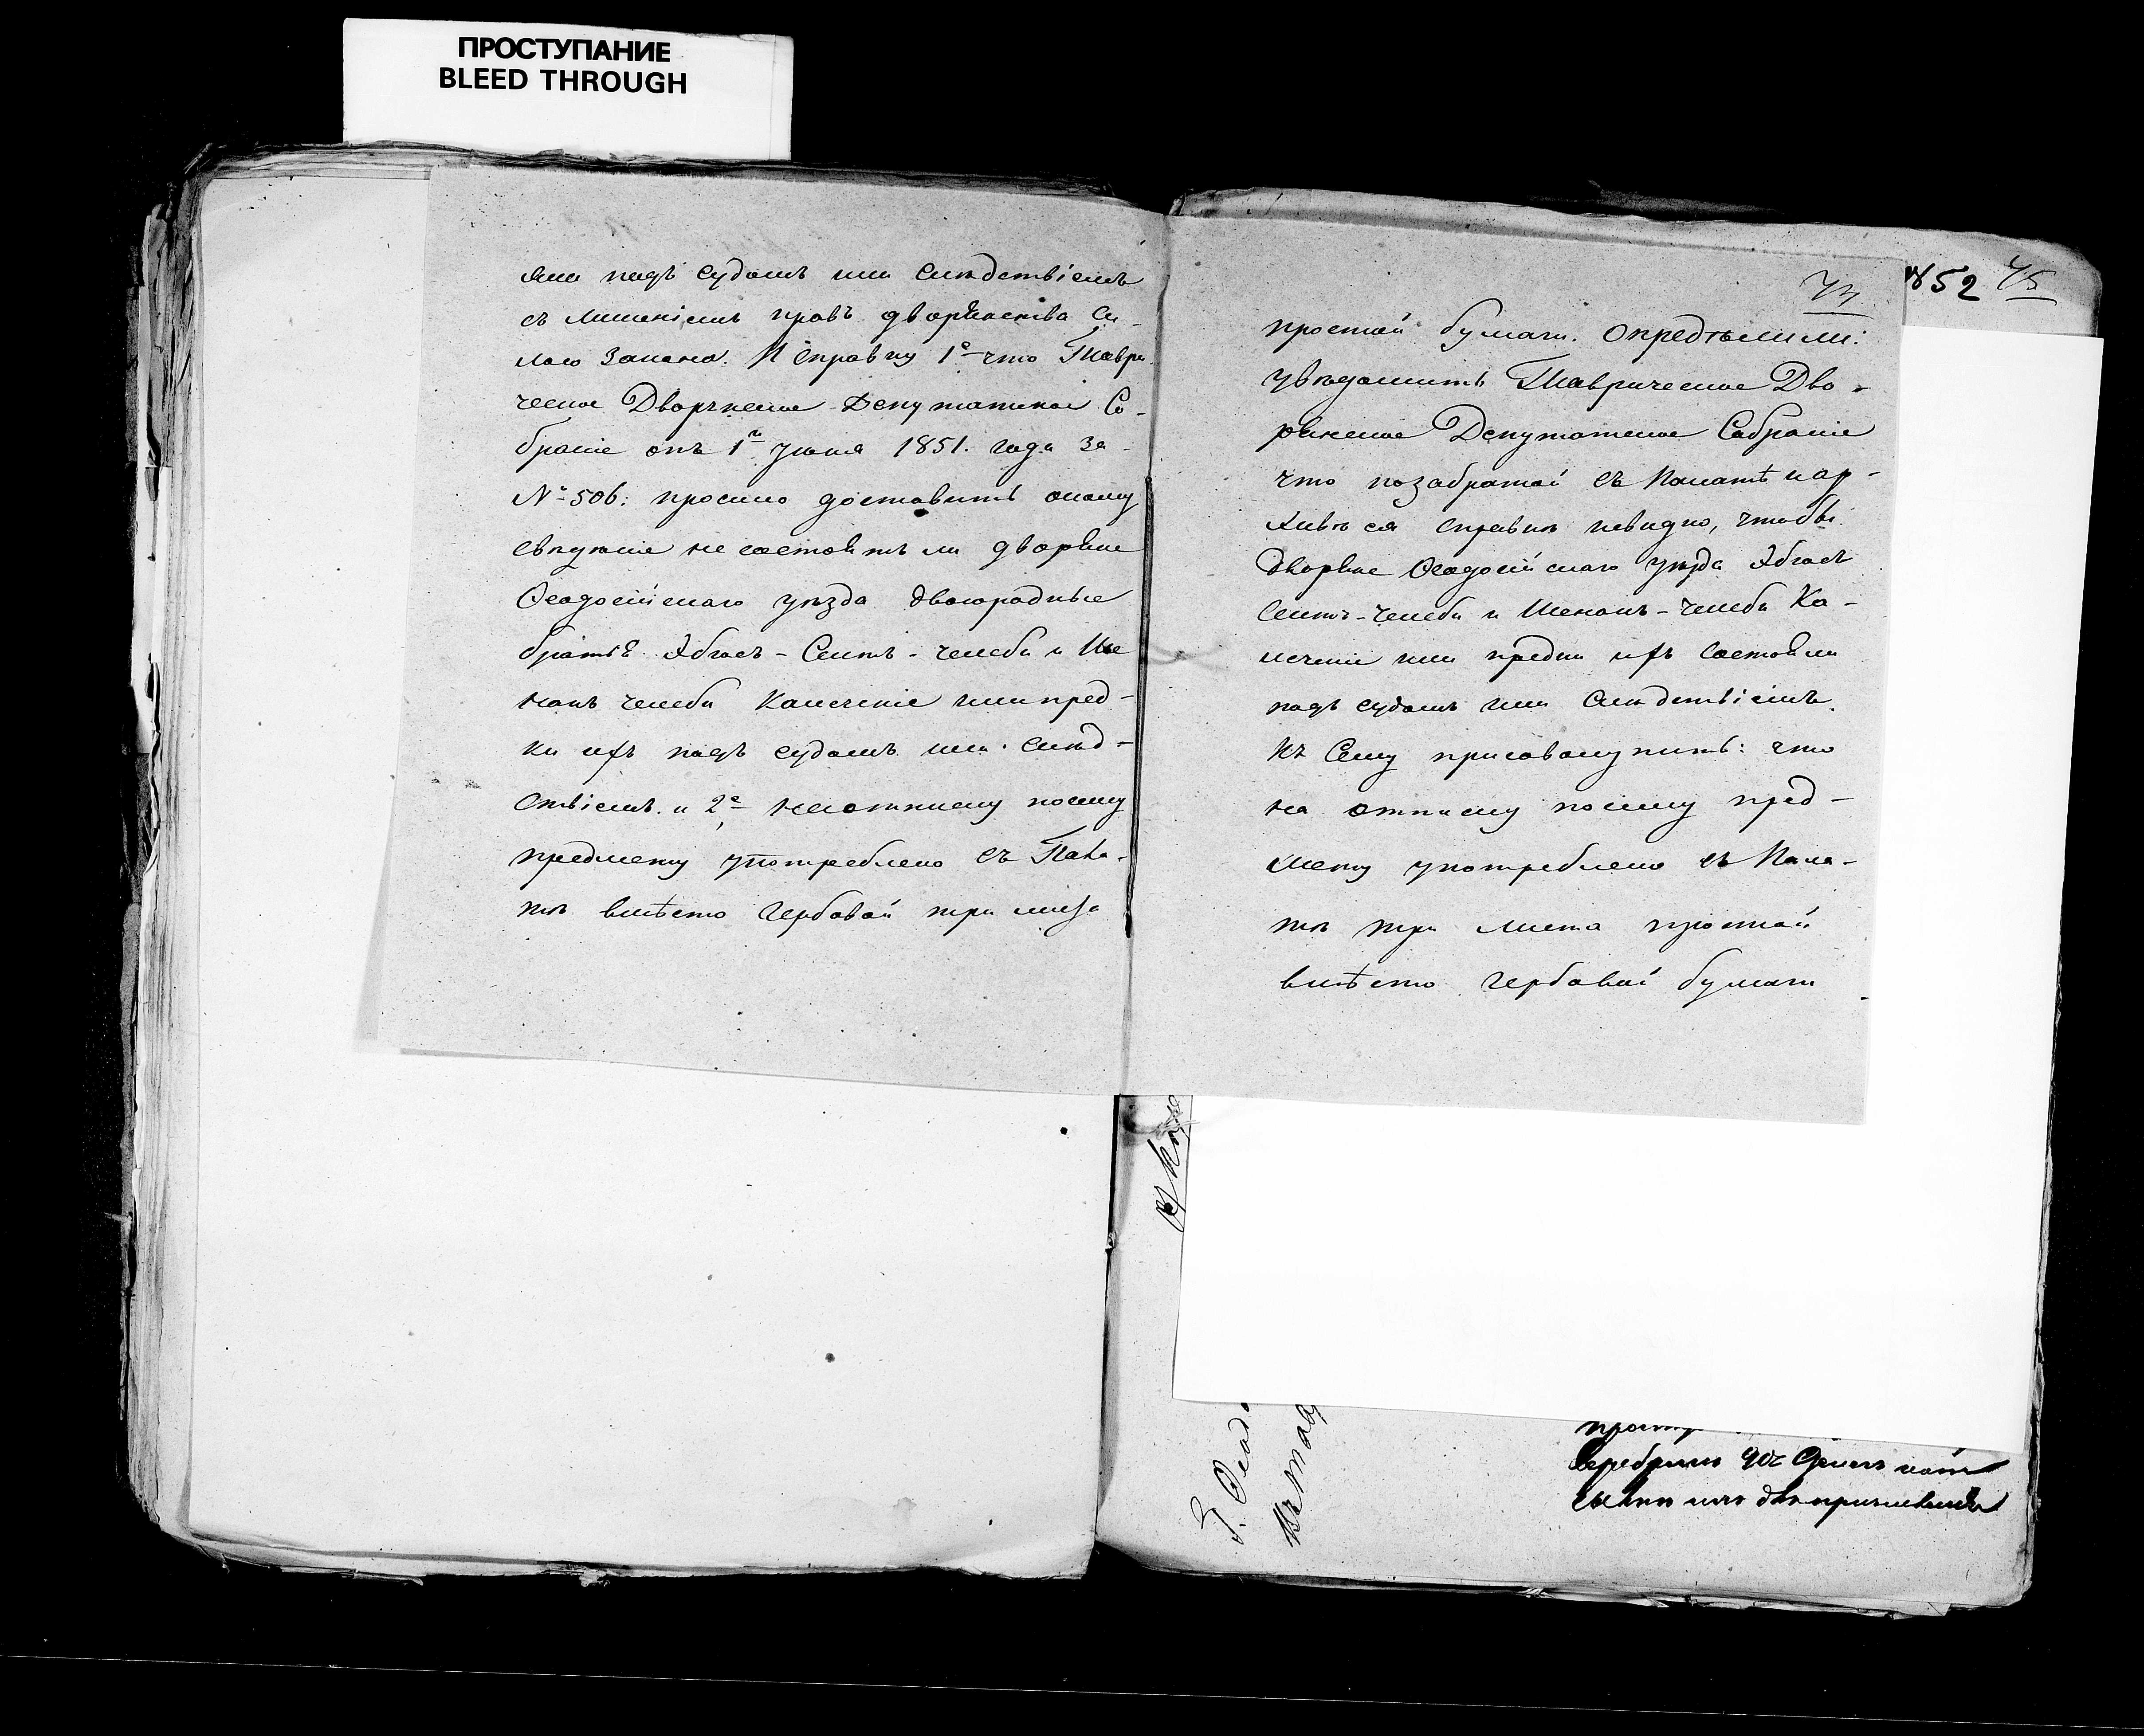 ПРОСТУПАНИЕ
BLEED THROUGH
яли подъ судомъ или слѣдствіемъ
съ лишеніемъ правъ дворянства си-
лою закона. И справку 1е что Таври-
ческое Дворянское Депутатское Со-
браніе отъ 1го Іюня 1851. года за
№ 506: просило доставить оному
свѣдѣніе не состоятъ ли дворяне
Ѳеодосійскаго уѣзда двоюродные
братья Абласъ-Сеитъ-челеби и Ше
челеби или пред-
ки ихъ подъ судомъ или слѣд-
ствіемъ. и 2е на отписку по сему
предмету употреблено въ Пала-
тѣ вмѣсто гербовой три листа
73
простой бумаги. Опредѣлили:
увѣдомить Таврическое Дво-
рянское Депутатское Собраніе
что по забратой въ Палатѣ и ар-
хивѣ ея справкѣ невидно, чтобы
дворяне Ѳеодосійскаго уѣзда Абласъ
Сеитъ-челеби и челеби Ка-
или предки ихъ состояли
подъ судомъ или слѣдствіемъ.
Къ сему присовокупить: что
на отписку по сему пред-
мету употреблено въ Пала-
тѣ три листа простой
вмѣсто гербовой бумаги
1852 75